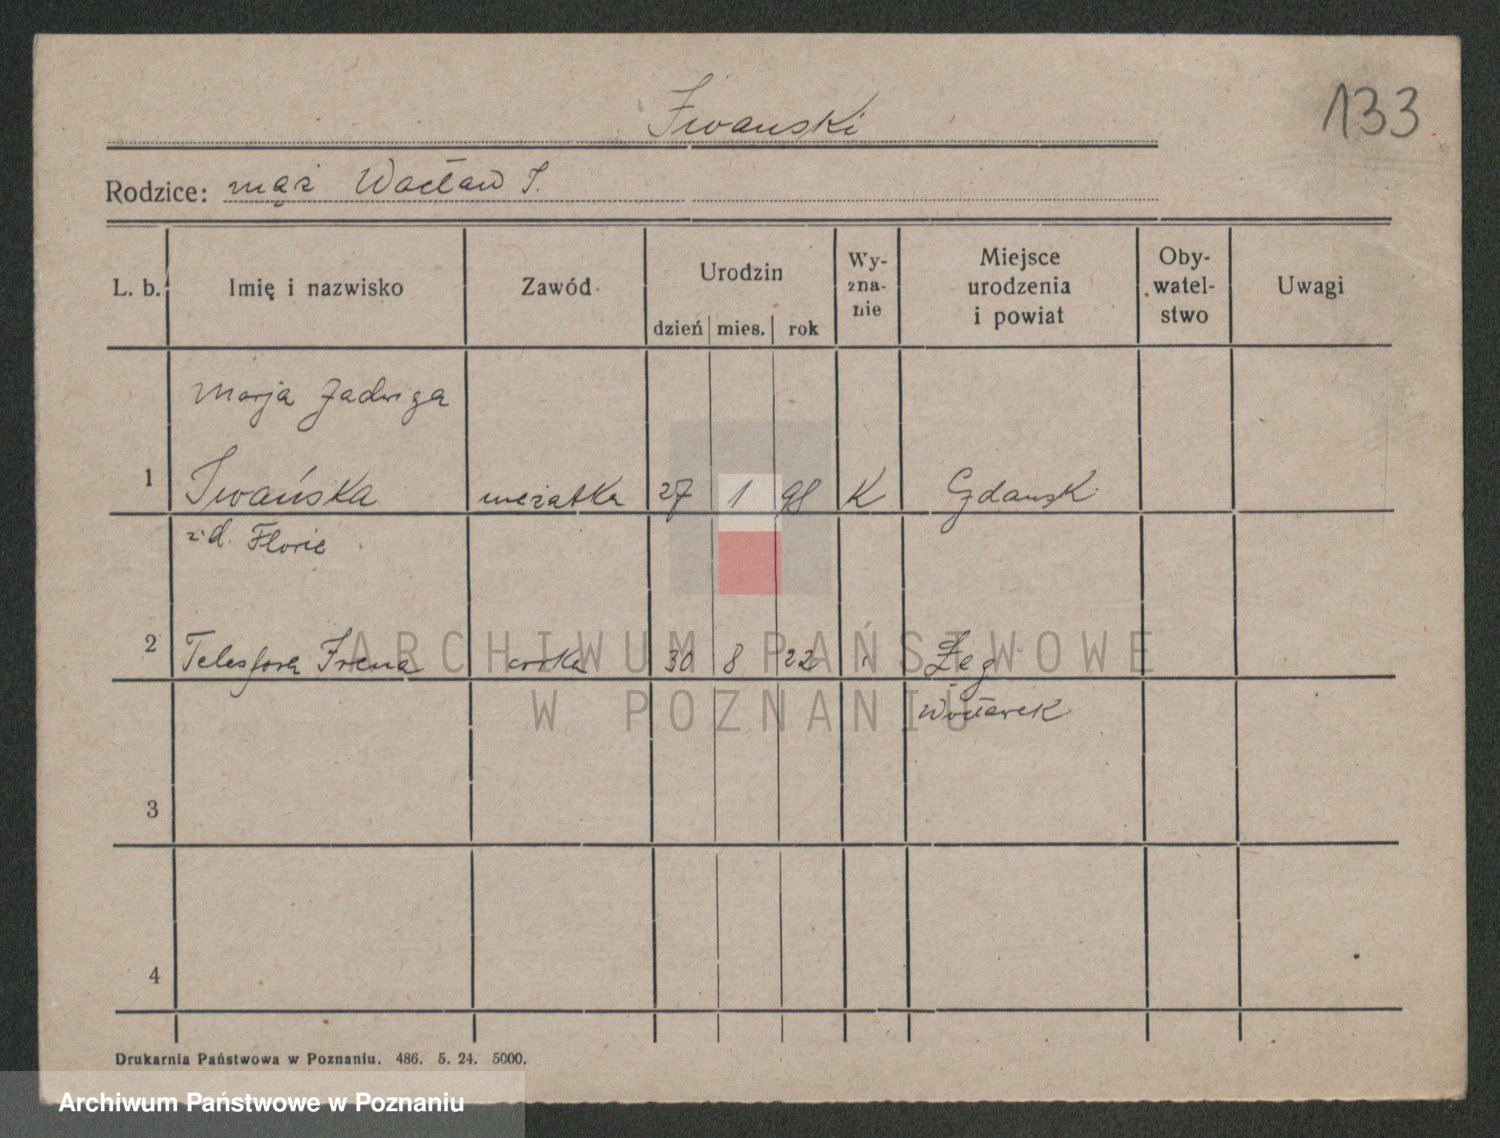 133
Iwanski
Rodzice: mąż Wacław I.
L. b.
Imię i nazwisko
Zawód
Urodzin
dzień mies. rok
Wy-
zna-
nie
Miejsce
urodzenia
i powiat
Oby-
watel-
stwo
Uwagi
Marja Jadwiga
1 Iwańska mężatka 27 1 98 K Gdansk
z d.
2 Telesfora Irena corka 30 8 22
3
4
Drukarnia Państwowa w Poznaniu. 486. 5. 24. 5000.
ARCHIWUM PAŃSTWOWE
W POZNANIU
Archiwum Państwowe w Poznaniu